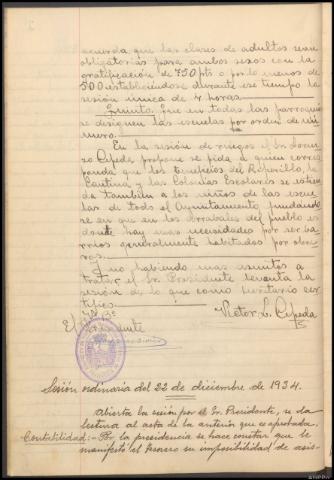 acuerda que las clases de adultos sean
obligatorias para ambos sexos con la
gratificación de 750 pts o por lo menos de
500 estableciéndose durante ese tiempo la
sesión única de 4 horas.
Quinto. Que en todas las parroquias
se designen las escuelas por orden de nú
mero.
En la sesión de ruegos el Sr. Loren
zo Cepeda propone se pida a quien corres
ponda que los beneficios del Roperillo, la
Cantina y las Colonias Escolares se extien
da también a los niños de las escue
las de todo el Ayuntamiento fundándo
se en que en los arrabales del pueblo es
donde hay mas necesidades por ser ba
rrios generalmente habitados por obre
ros.
Y no habiendo mas asuntos a
tratar el Sr. Presidente levanta la
sesión de lo que como secretario cer
tifico.
Vº Bº
El Presidente
Victor L. Cepeda
Sesión ordinaria del 22 de diciembre de 1934.
Abierta la sesión por el Sr. Presidente, se da
lectura al acta de la anterior que es aprobada.
Contabilidad:- Por la presidencia se hace constar que le
manifestó el tesorero su imposibilidad de asis-